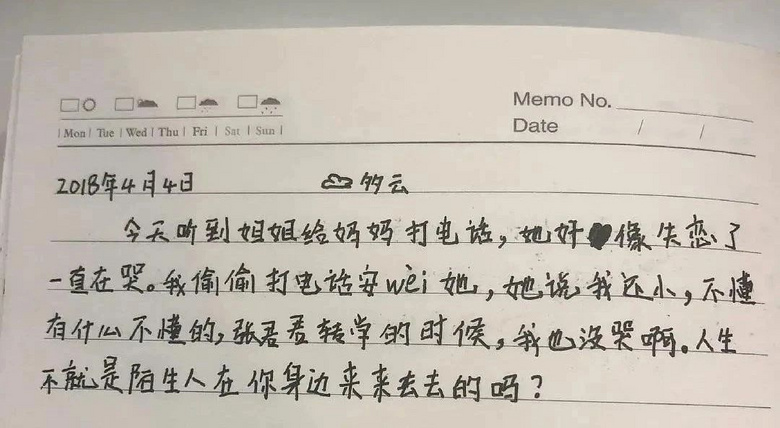 Memo No.
Mon Tue Wed Thu Fri Sat Sun
Date / /
2018年4月4日 多云
今天听到姐姐给妈妈打电话,她好像失恋了
一直在哭。我偷偷打电话安wèi她,她说我还小,不懂
有什么不懂的,张君君转学的时候,我也没哭啊。人生
不就是陌生人在你身边来来去去的吗?